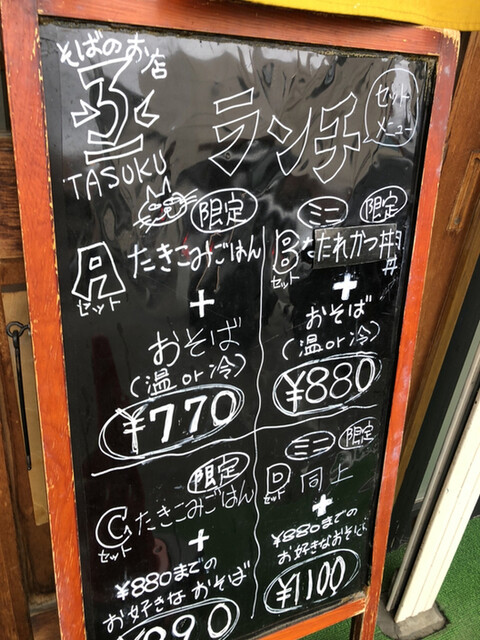 そばのお店
TASUKU
ランチ
セット
メニュー
限定
A
セット
たきこみごはん
+
おそば
(温or冷)
¥770
ミニ
限定
B
セット
たれかつ丼
+
おそば
(温or冷)
¥880
限定
C
セット
たきこみごはん
+
¥880までの
お好きなおそば
ミニ
限定
D
セット
同上
+
¥880までの
お好きなおそば
¥1100